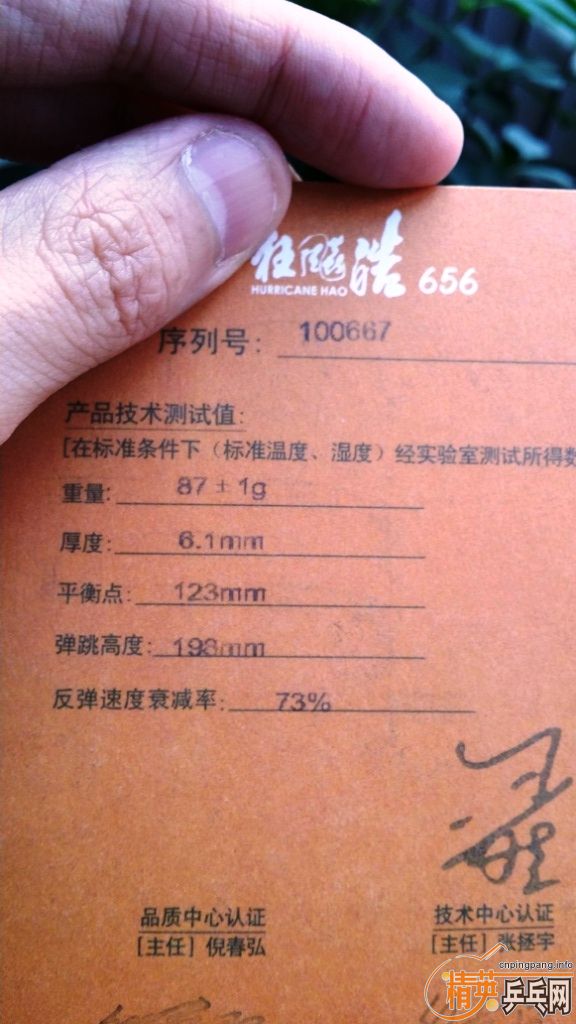 狂飚皓 656
HURRICANE HAO
序列号: 100667
产品技术测试值:
[在标准条件下（标准温度、湿度）经实验室测试所得数
重量: 87±1g
厚度: 6.1mm
平衡点: 123mm
弹跳高度: 198mm
反弹速度衰减率: 73%
品质中心认证
[主任] 倪春弘
技术中心认证
[主任] 张拯宇
cnpingpang.info
精英乒乓网